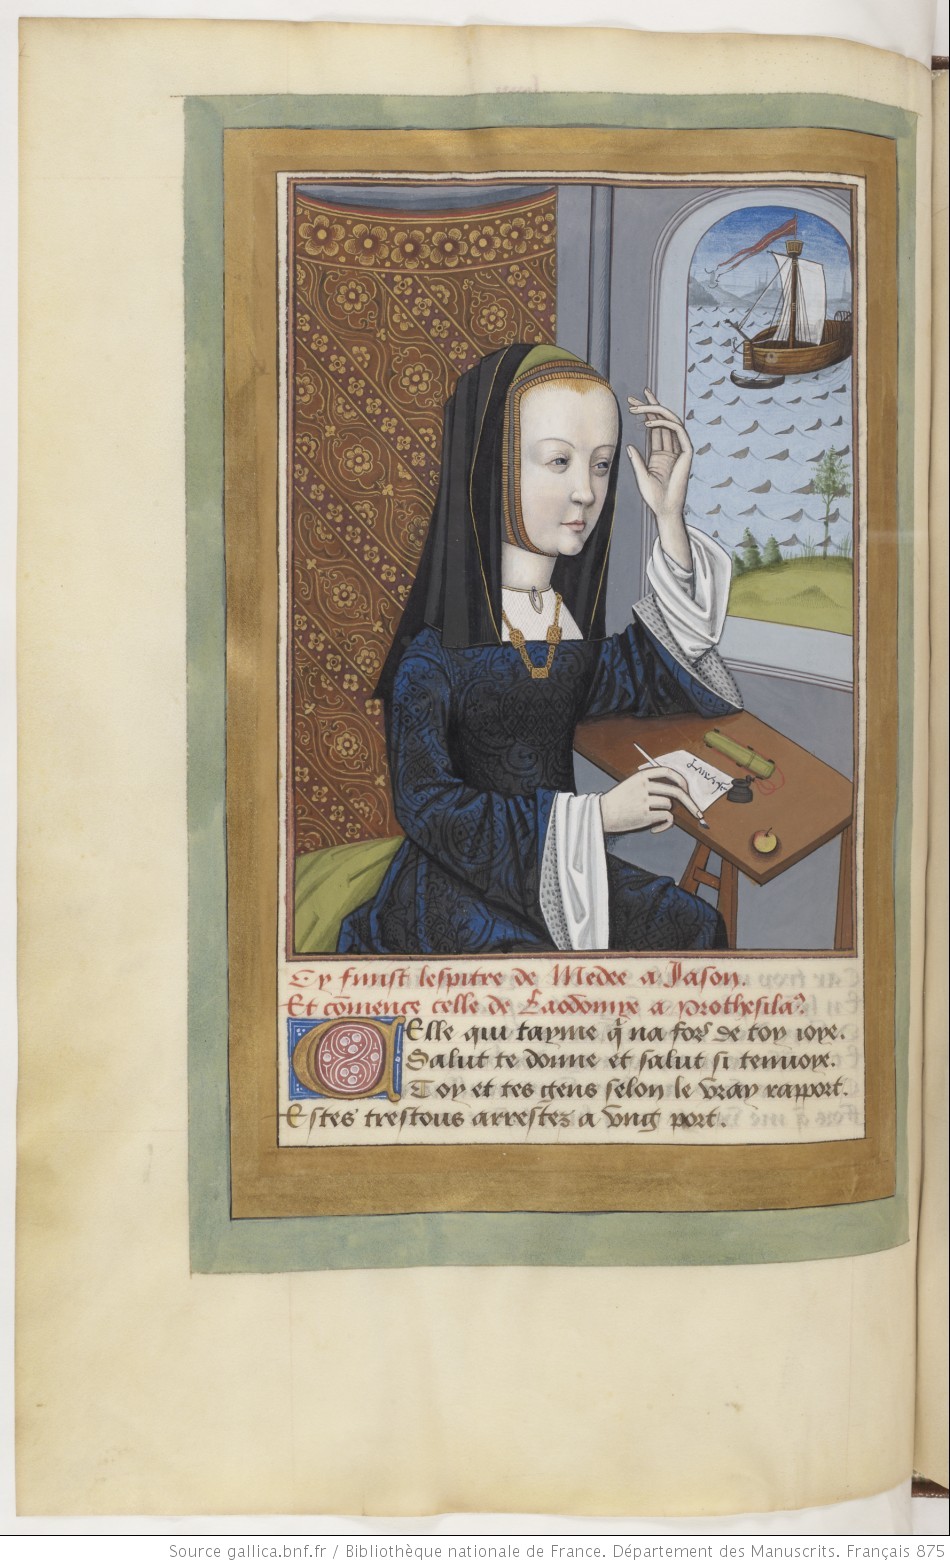 Cy finist lespitre de Medee a Jason.
Et cõmence celle de Laodomye a prothesilaꝰ.
CElle qui tayme q̃ na fors de toy ioye.
Salut te donne et salut si tenuoye.
Toy et tes gens selon le vray rapport.
Estes trestous arrestez a vng port.
Source gallica.bnf.fr / Bibliothèque nationale de France. Département des Manuscrits. Français 875